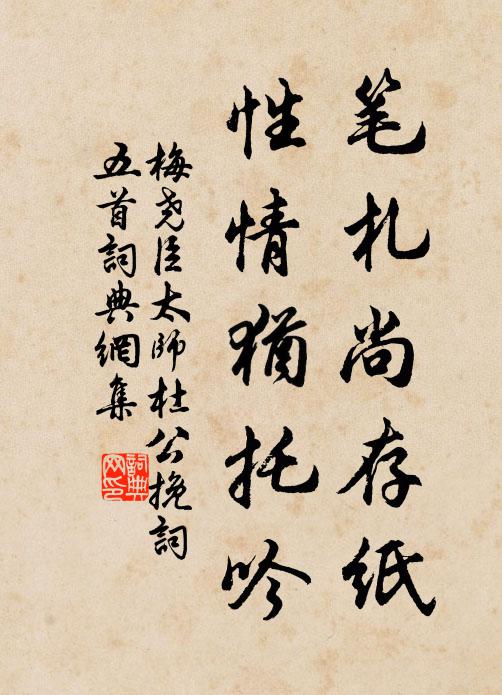 笔札尚存纸
性情犹托吟
梅尧臣太师杜公挽詞
五首詞典網集
詞典网印